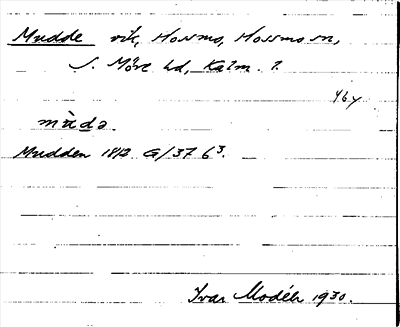 Mudde vik, Hossmo, Hossmo sn,
S. Möre hd, Kalm. l.
46y
mùdə
Mudden 1812 G/37 63.
Ivar Modéer 1930.